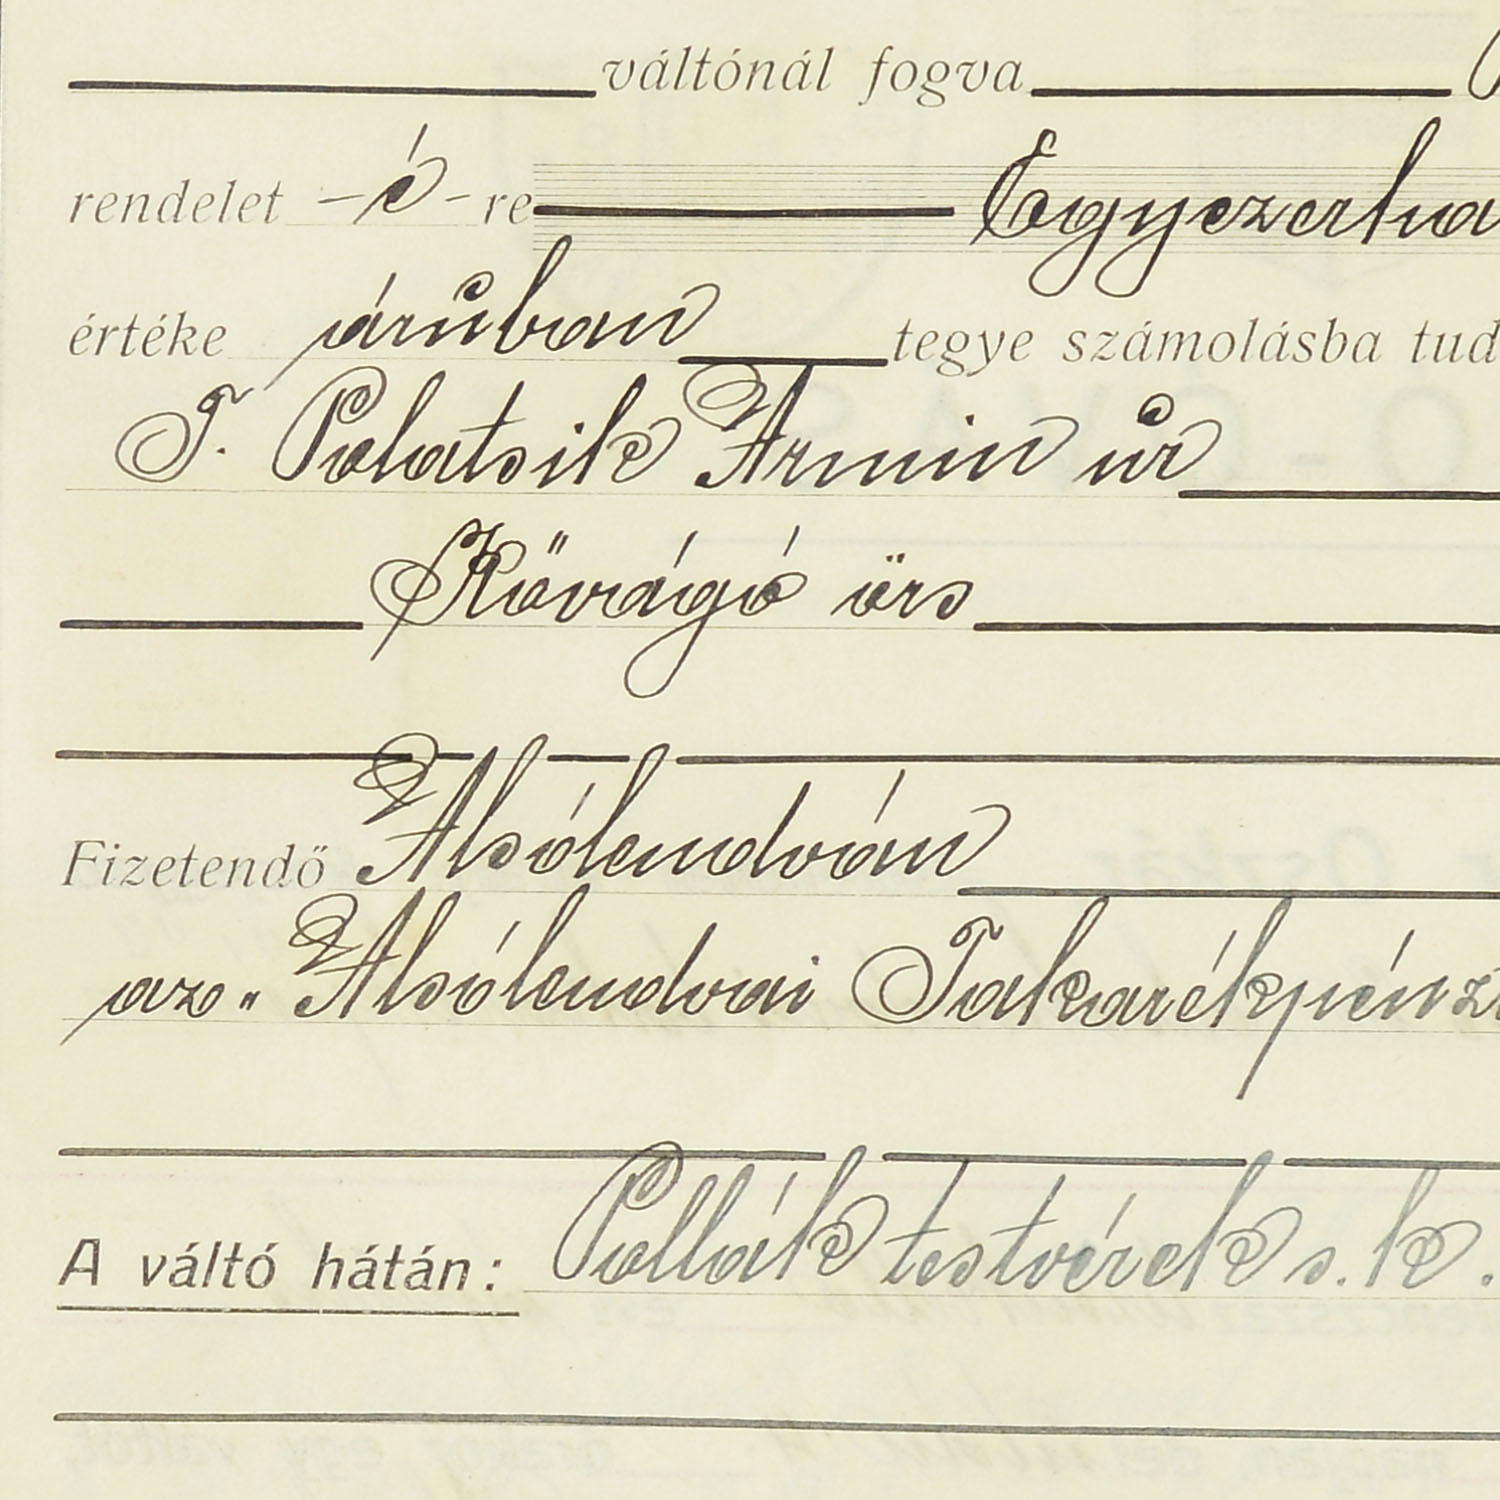 váltónál fogva
rendelet -é-re Egyezerha
értéke árúban tegye számolásba tud
T. Polatsik Ármin úr
Kővágó örs
Fizetendő Alsólendván
az „Alsólendvai Takarékpénz
A váltó hátán: Pollák testvérek s. k.